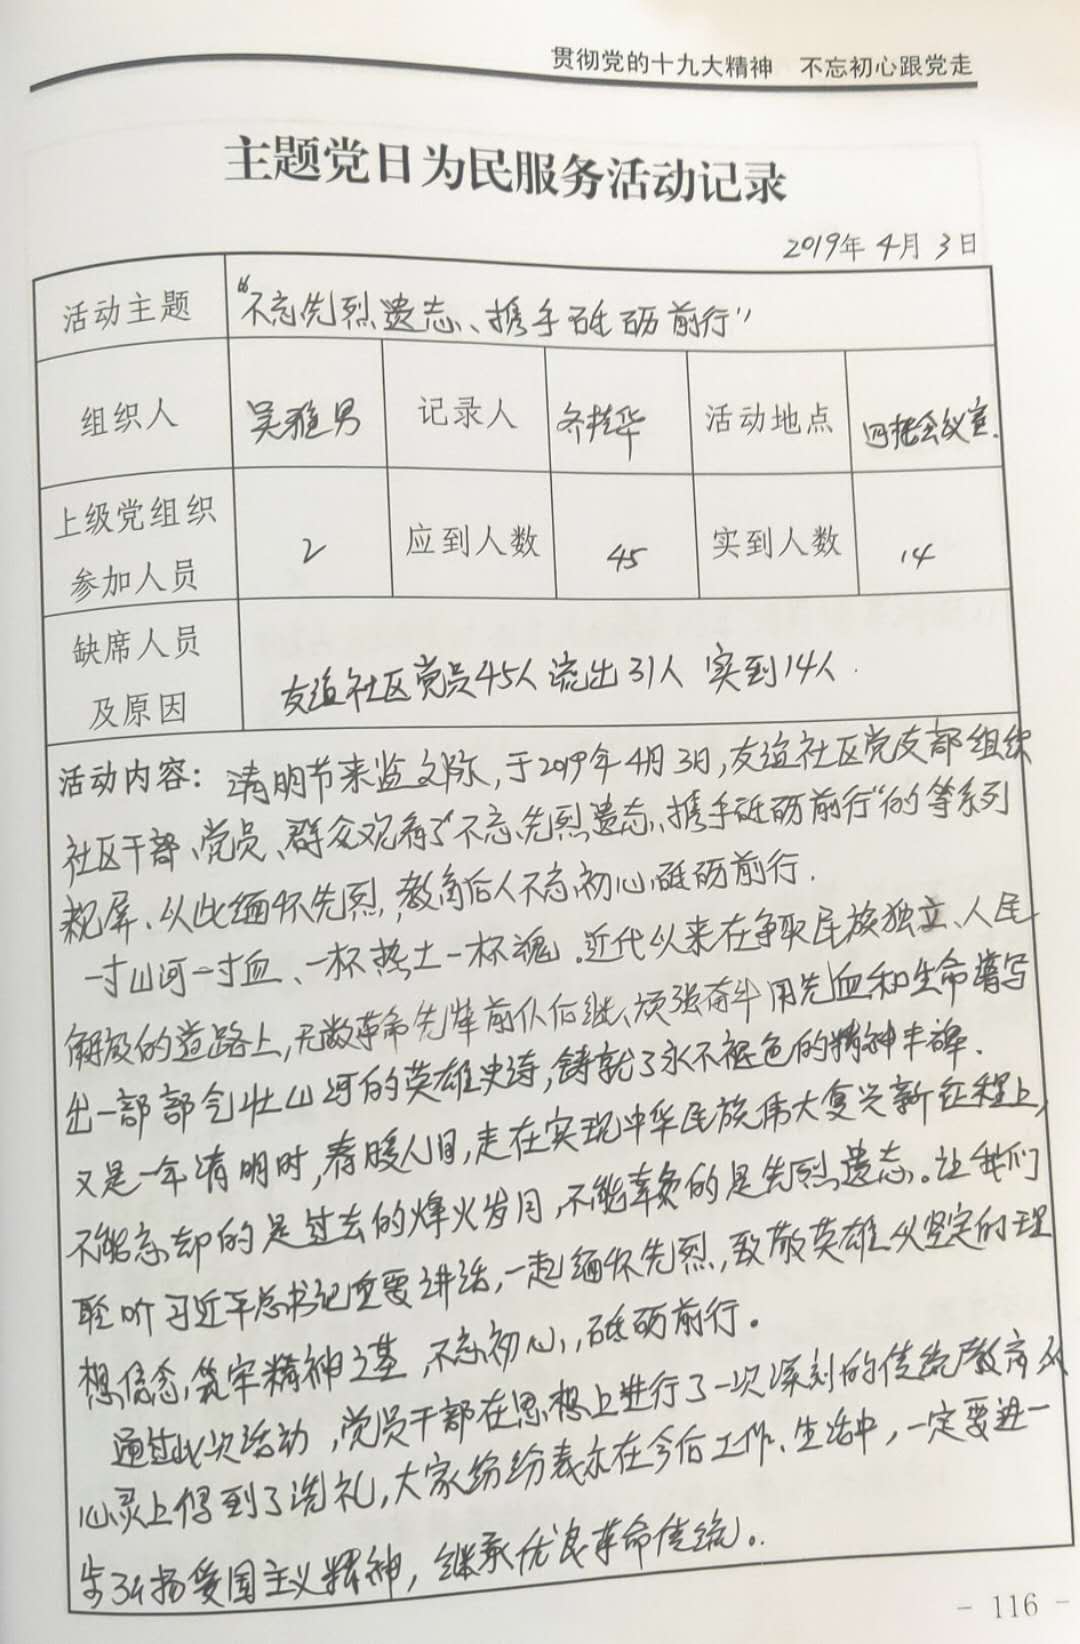 贯彻党的十九大精神 不忘初心跟党走
主题党日为民服务活动记录
2019年 4月 3日
活动主题 “不忘先烈遗志、携手砥砺前行”
组织人 吴雅男 记录人 桂华 活动地点 会议室.
上级党组织
参加人员 2 应到人数 45 实到人数 14
缺席人员
及原因 友谊社区党员45人 流出31人 实到14人.
活动内容：清明节来监之际,于2019年4月3日,友谊社区党支部组织
社区干部、党员、群众观看了“不忘先烈遗志、携手砥砺前行”的等系列
视屏、从此缅怀先烈,教育后人不忘初心,砥砺前行.
一寸山河一寸血、一杯热土一杯魂.近代以来在争取民族独立、人民
解放的道路上,无数革命先辈前仆后继、顽强奋斗用先血和生命谱写
出一部部气壮山河的英雄史诗,铸就了永不褪色的精神丰碑.
又是一年清明时,春暖人间,走在实现中华民族伟大复兴新征程上,
不能忘却的是过去的烽火岁月,不能辜负的是先烈遗志。让我们
聆听习近平总书记重要讲话,一起缅怀先烈,致敬英雄从坚定的理
想信念,筑牢精神之基,不忘初心,砥砺前行。
通过此次活动,党员干部在思想上进行了一次深刻的传统教育从
心灵上得到了洗礼,大家纷纷表示在今后工作、生活中,一定要进一
步弘扬爱国主义精神,继承优良革命传统。
- 116 -